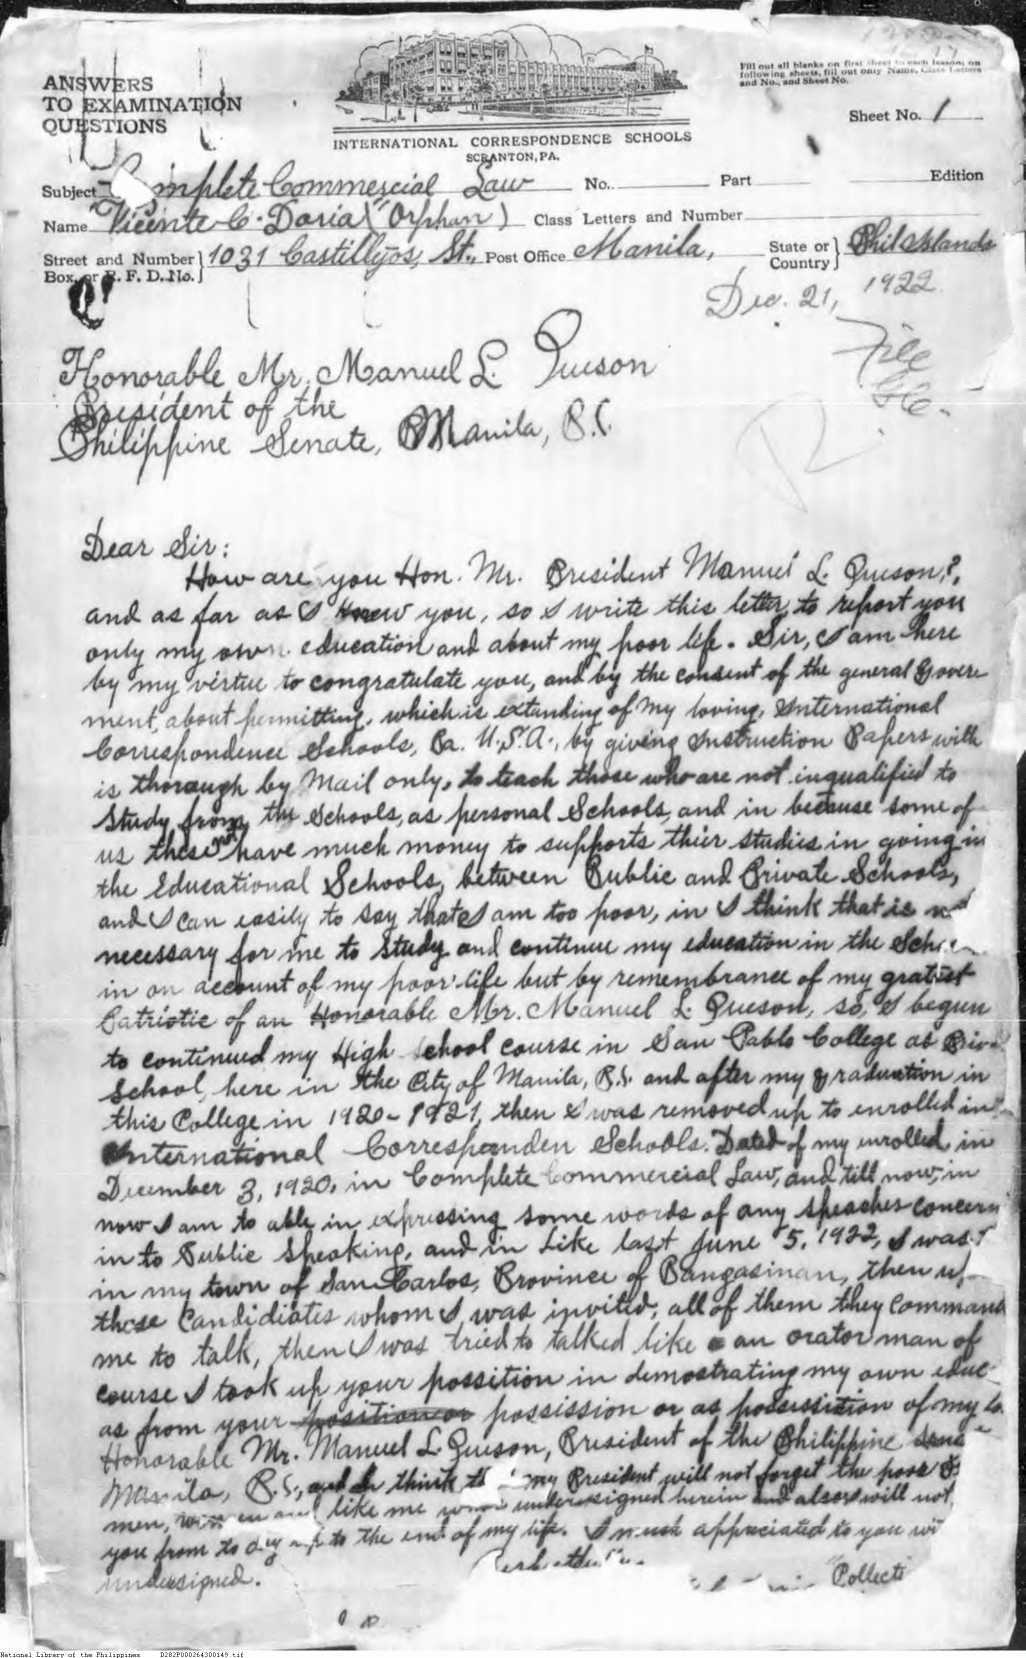 ANSWERS
TO EXAMINATION
QUESTIONS
Fill out all blanks on first sheet to each lesson; on
following sheets, fill out only Name, Class Letters
and No., and Sheet No.
Sheet No. 1
INTERNATIONAL CORRESPONDENCE SCHOOLS
SCRANTON, PA.
Subject Complete Commercial Law No. Part Edition
Name Vicente C. Doria ("Orphan) Class Letters and Number
Street and Number Box, or R. F. D. No. 1031 Castillejos, St., Post Office Manila, State or Country Phil Islands
Dec. 21, 1922
File
Honorable Mr. Manuel L. Queson
President of the
Philippine Senate, Manila, P.I.
Dear Sir:
How are you Hon. Mr. President Manuel L. Queson?,
and as far as I know you, so I write this letter, to report you
only my own education and about my poor life. Sir, I am here
by my virtue to congratulate you, and by the consent of the general Govern
ment, about permitting, which is extanding of my loving, International
Correspondence Schools, Pa. U.S.A., by giving Instruction Papers with
is thorough by Mail only, to teach those who are not inqualified to
study from the Schools, as personal Schools, and in because some of
us these not have much money to supports thier studies in going in
the Educational Schools, between Public and Private Schools,
and I can easily to say that I am too poor, in I think that is
necessary for me to study and continue my education in the
in on account of my poor life but by remembrance of my
Patriotic of an Honorable Mr. Manuel L. Queson, so, I begun
to continued my High School course in San Pablo College as
School, here in the City of Manila, P.I. and after my graduation in
this College in 1920-1921, then I was removed up to enrolled in
International Correspanden Schools. Dated of my enrolled in
December 3, 1920, in Complete Commercial Law, and till now, in
now I am to able in expressing some words of any speaches concern
in to Public Speaking, and in Like last June 5, 1922, I was
in my town of San Carlos, Province of Pangasinan, then
those Candidiates whom I was invited, all of them they command
me to talk, then I was tried to talked like an orator man of
course I took up your possition in demostrating my own educ
as from your position or possission or as possission of my
Honorable Mr. Manuel L. Queson, President of the Philippine
Manila, P.I., and I think my President will not forget the poor
men, like me undersigned herein and also I will not
you from to day up to the end of my life. I much appreciated to you
undersigned.
Pollecti
National Library of the Philippines D282P000264300149.tif